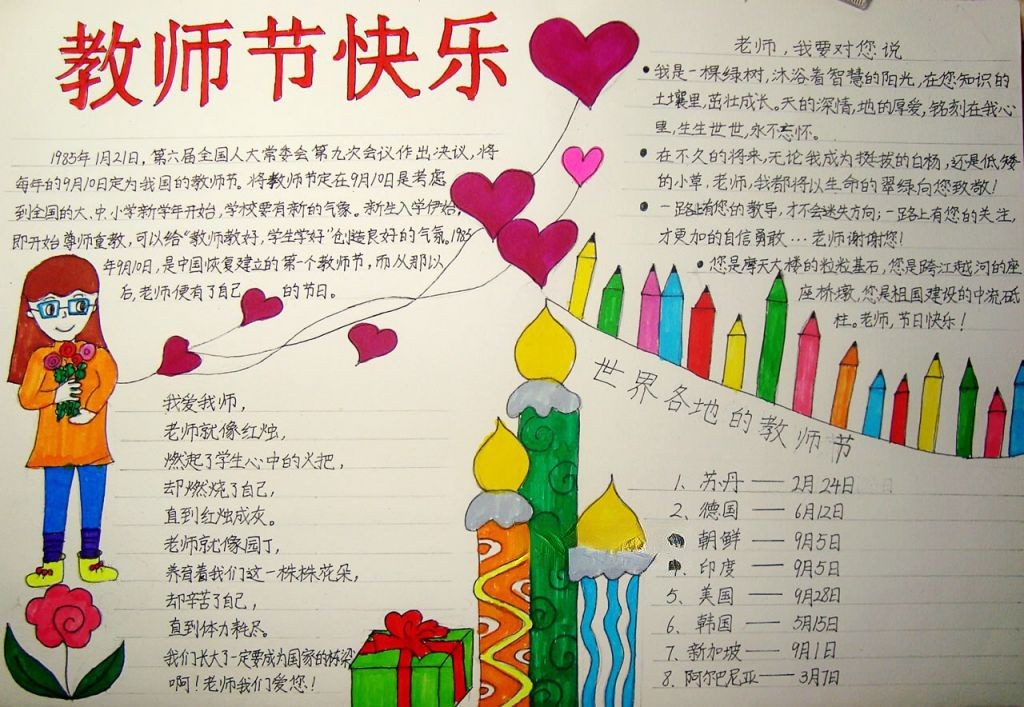 教师节快乐
1985年1月21日,第六届全国人大常委会第九次会议作出决议,将
每年的9月10日定为我国的教师节。将教师节定在9月10日是考虑
到全国的大、中、小学新学年开始,学校要有新的气象。新生入学伊始,
即开始尊师重教,可以给“教师教好,学生学好”创造良好的气氛。1985
年9月10日,是中国恢复建立的第一个教师节,而从那以
后,老师便有了自己的节日。
我爱我师,
老师就像红烛,
燃起了学生心中的火把,
却燃烧了自己,
直到红烛成灰。
老师就像园丁,
养育着我们这一株株花朵,
却辛苦了自己,
直到体力耗尽。
我们长大了一定要成为国家的桥梁
啊!老师我们爱您!
老师,我要对您说
•我是一棵绿树,沐浴着智慧的阳光,在您知识的
土壤里,茁壮成长。天的深情,地的厚爱,铭刻在我心
里,生生世世,永不忘怀。
•在不久的将来,无论我成为挺拔的白杨,还是低矮
的小草,老师,我都将以生命的翠绿向您致敬!
•一路上有您的教导,才不会迷失方向;一路上有您的关注,
才更加的自信勇敢…老师谢谢您!
•您是摩天大楼的粒粒基石,您是跨江越河的座
座桥墩,您是祖国建设的中流砥
柱。老师,节日快乐!
世界各地的教师节
1、苏丹——2月24日
2、德国——6月12日
朝鲜——9月5日
印度——9月5日
5、美国——9月28日
6、韩国——5月15日
7、新加坡——9月1日
8、阿尔巴尼亚——3月7日